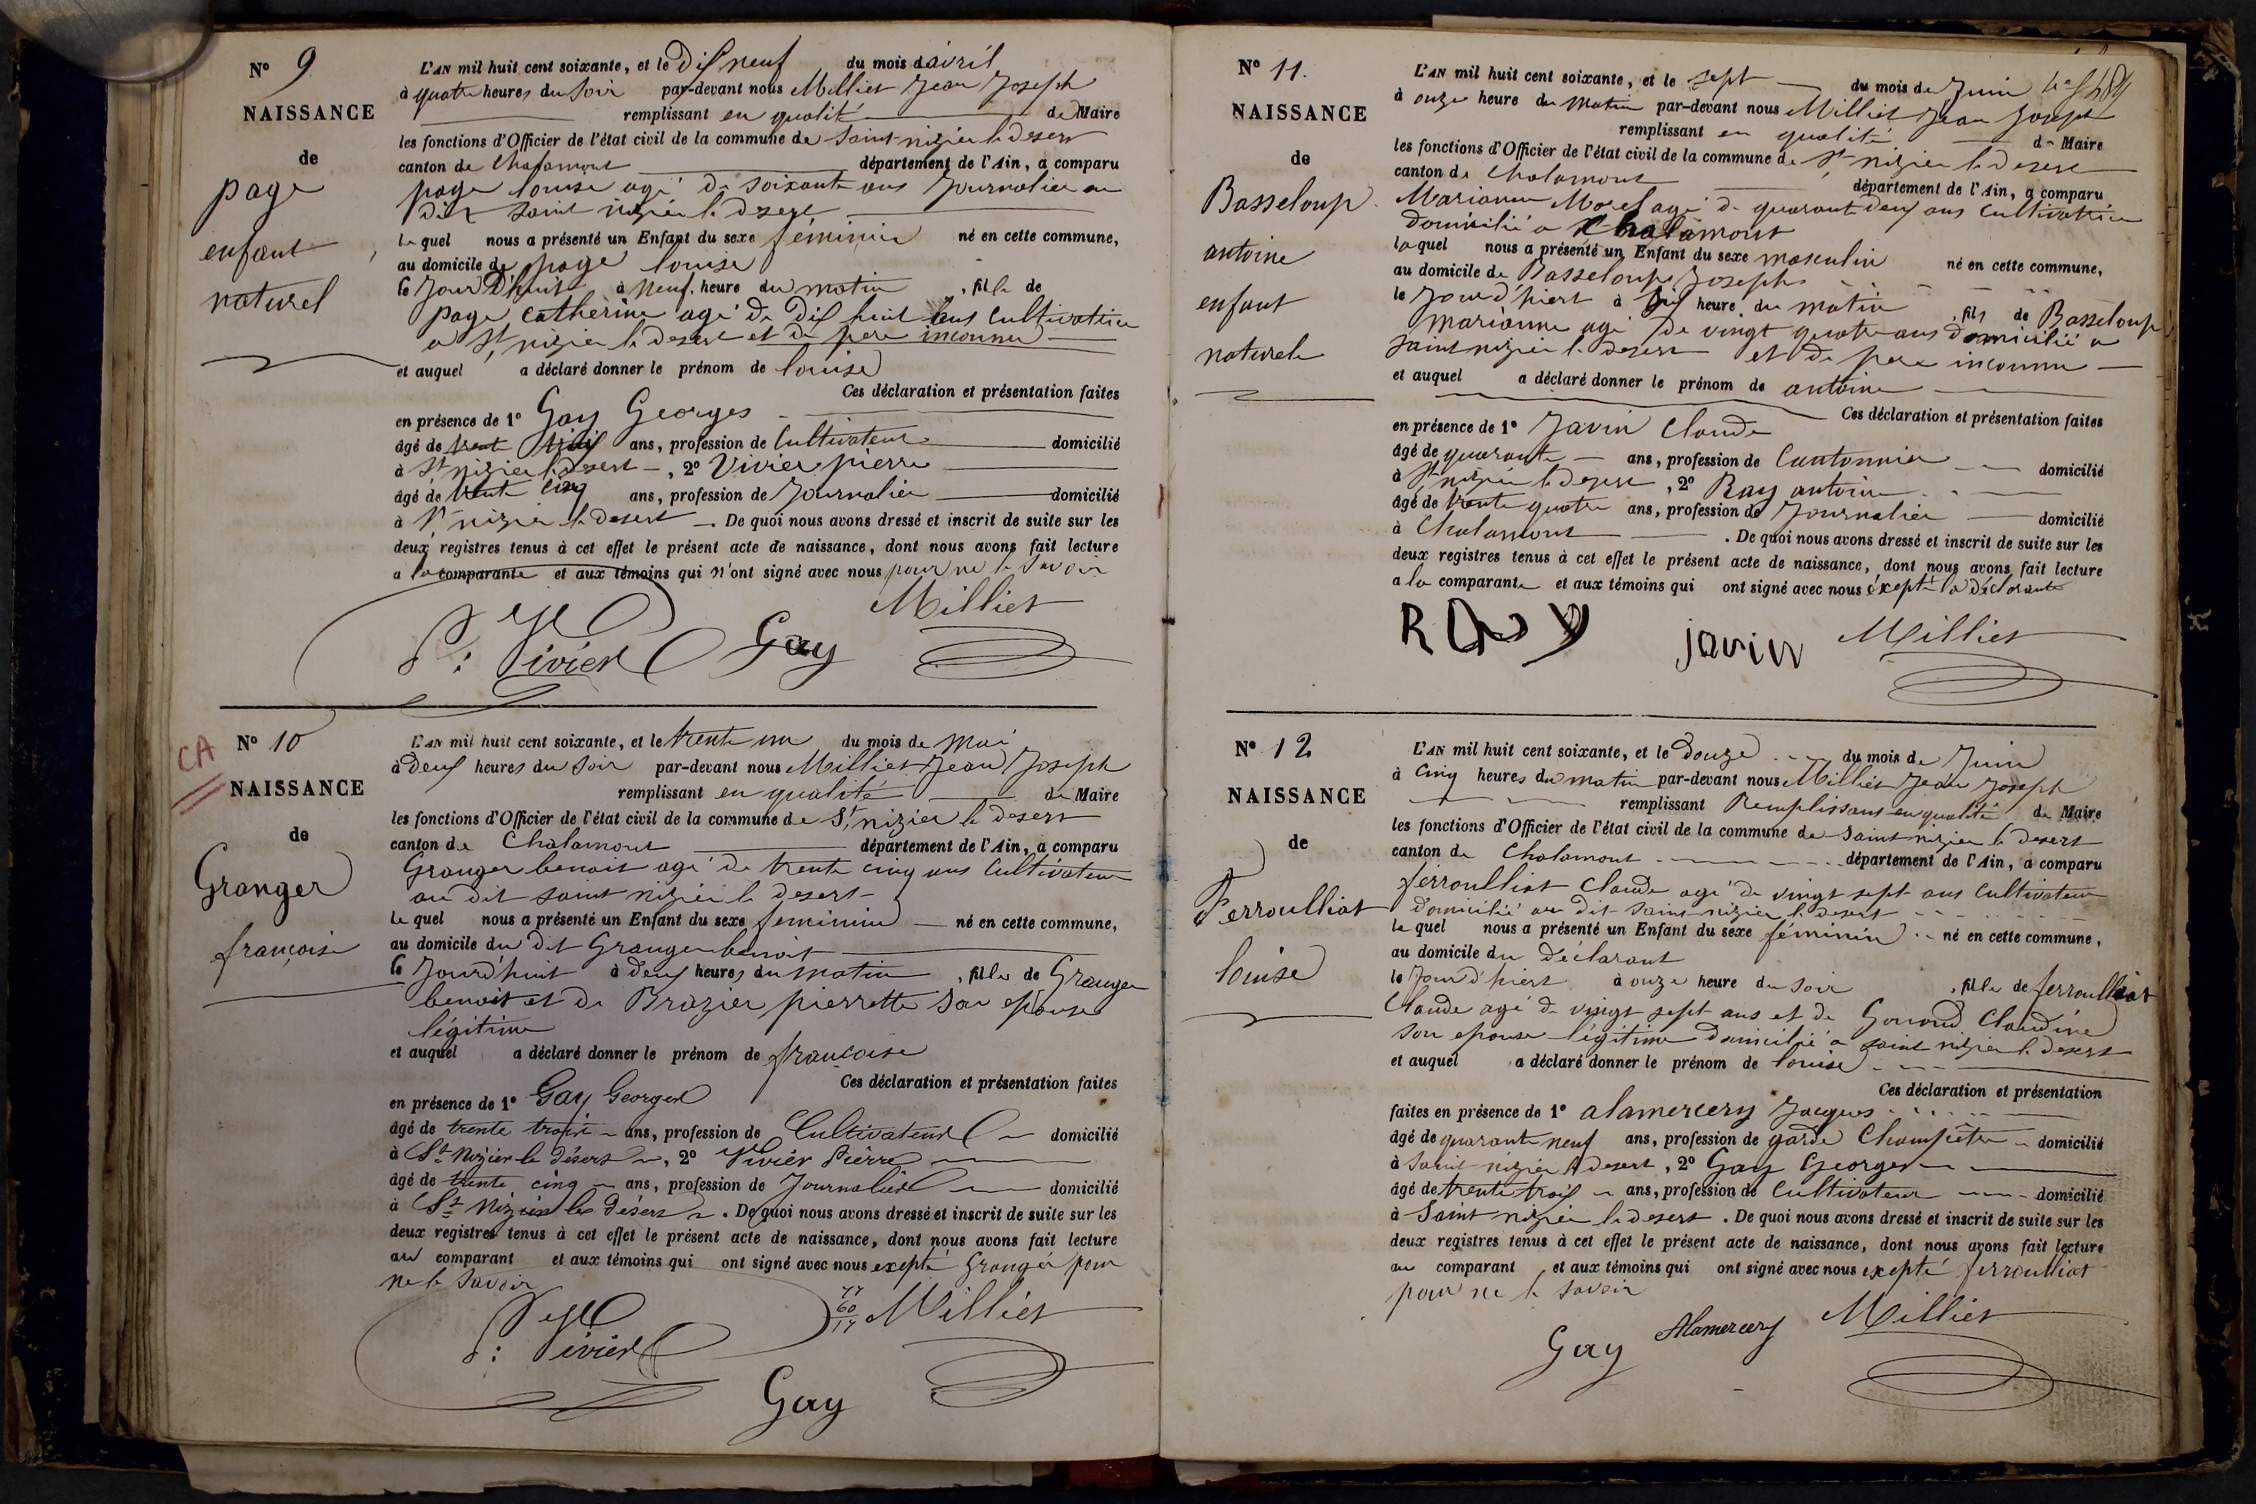 N° 9
NAISSANCE
de
page
enfant
naturel
L'AN mil huit cent soixante, et le dix neuf du mois d'avril
à quatre heures du soir par-devant nous Milliet Jean Joseph
remplissant en qualité de Maire
les fonctions d'Officier de l'état civil de la commune de Saint nizier le desert
canton de Chalamont département de l'Ain, a comparu
page louise agé de soixante ans Journalier au
dit saint nizier le desert
le quel nous a présenté un Enfant du sexe féminin né en cette commune,
au domicile de page louise
le jour d'huit à neuf heure du matin, fille de
page catherine agé de dix huit ans Cultivatrice
a St nizier le desert et de père inconnu
et auquel a déclaré donner le prénom de louise
Ces déclaration et présentation faites
en présence de 1° Gay Georges
âgé de trent trois ans, profession de Cultivateur domicilié
à St nizier le desert, 2° Vivier pierre
âgé de trente cinq ans, profession de Journalier domicilié
à St nizier le desert. De quoi nous avons dressé et inscrit de suite sur les
deux registres tenus à cet effet le présent acte de naissance, dont nous avons fait lecture
a la comparante et aux témoins qui n'ont signé avec nous pour ne le savoir
Milliet
P: Vivier Gay
CA
N° 10
NAISSANCE
de
Granger
françoise
L'AN mil huit cent soixante, et le trente un du mois de Mai
à deux heures du soir par-devant nous Milliet Jean Joseph
remplissant en qualité de Maire
les fonctions d'Officier de l'état civil de la commune de St nizier le desert
canton de Chalamont département de l'Ain, a comparu
Granger benoit agé de trente cinq ans Cultivateur
au dit saint nizier le desert
le quel nous a présenté un Enfant du sexe feminin né en cette commune,
au domicile du dit Granger benoit
le Jourd'huit à deux heures du matin, fille de Granger
benoit et de Brazier pierrette son epouse
légitime
et auquel a déclaré donner le prénom de françoise
Ces déclaration et présentation faites
en présence de 1° Gay Georges
âgé de trente trois ans, profession de Cultivateur domicilié
à St Nizier le désert, 2° Vivier Pierre
âgé de trente cinq ans, profession de Journalier domicilié
à St Nizier le désert. De quoi nous avons dressé et inscrit de suite sur les
deux registres tenus à cet effet le présent acte de naissance, dont nous avons fait lecture
au comparant et aux témoins qui ont signé avec nous excepté Granger pour
ne le savoir
77
60
17
Milliet
P: Vivier
Gay
N° 11.
NAISSANCE
de
Basseloup
antoine
enfant
naturele
L'AN mil huit cent soixante, et le sept du mois de Juin
à onze heure du matin par-devant nous Milliet Jean Joseph
remplissant en qualité de Maire
les fonctions d'Officier de l'état civil de la commune de St nizier le desert
canton de Chalamont département de l'Ain, a comparu
Marianne Morel agé de quarante deux ans Cultivatrice
domicilié a Chalamont
laquel nous a présenté un Enfant du sexe masculin né en cette commune,
au domicile de Basseloup Joseph
le Jour d'hiert à heure du matin, fils de Basseloup
marianne agé de vingt quatre ans domicilié a
saint nizier le desert et de pere inconnu
et auquel a déclaré donner le prénom de antoine
Ces déclaration et présentation faites
en présence de 1° Javin Claude
âgé de quarante ans, profession de Cantonnier domicilié
à St nizier le desert, 2° Ray antoine
âgé de trente quatre ans, profession de Journalier domicilié
à Chalamont. De quoi nous avons dressé et inscrit de suite sur les
deux registres tenus à cet effet le présent acte de naissance, dont nous avons fait lecture
a la comparante et aux témoins qui ont signé avec nous éxcepté la déclarante
RAY javin Milliet
N° 12
NAISSANCE
de
Ferroulliat
louise
L'AN mil huit cent soixante, et le douze du mois de Juin
à cinq heures du matin par-devant nous Milliet Jean Joseph
remplissant Remplissant en qualité de Maire
les fonctions d'Officier de l'état civil de la commune de saint nizier le desert
canton de Chalamont département de l'Ain, a comparu
ferroulliat Claude agé de vingt sept ans Cultivateur
domicilié au dit saint nizier le desert
le quel nous a présenté un Enfant du sexe féminin né en cette commune,
au domicile du déclarant
le Jour d'hiert à onze heure du soir, fille de ferroulliat
Claude agé de vingt sept ans et de Claudine
son epouse légitime domicilié a saint nizier le desert
et auquel a déclaré donner le prénom de louise
Ces déclaration et présentation
faites en présence de 1° alamercery Jacques
âgé de quarante neuf ans, profession de garde Champêtre domicilié
à saint nizier le desert, 2° Gay Georges
âgé de trente trois ans, profession de Cultivateur domicilié
à Saint nizier le desert. De quoi nous avons dressé et inscrit de suite sur les
deux registres tenus à cet effet le présent acte de naissance, dont nous avons fait lecture
au comparant et aux témoins qui ont signé avec nous excepté ferroulliat
pour ne le savoir
Gay Alamercery Milliet